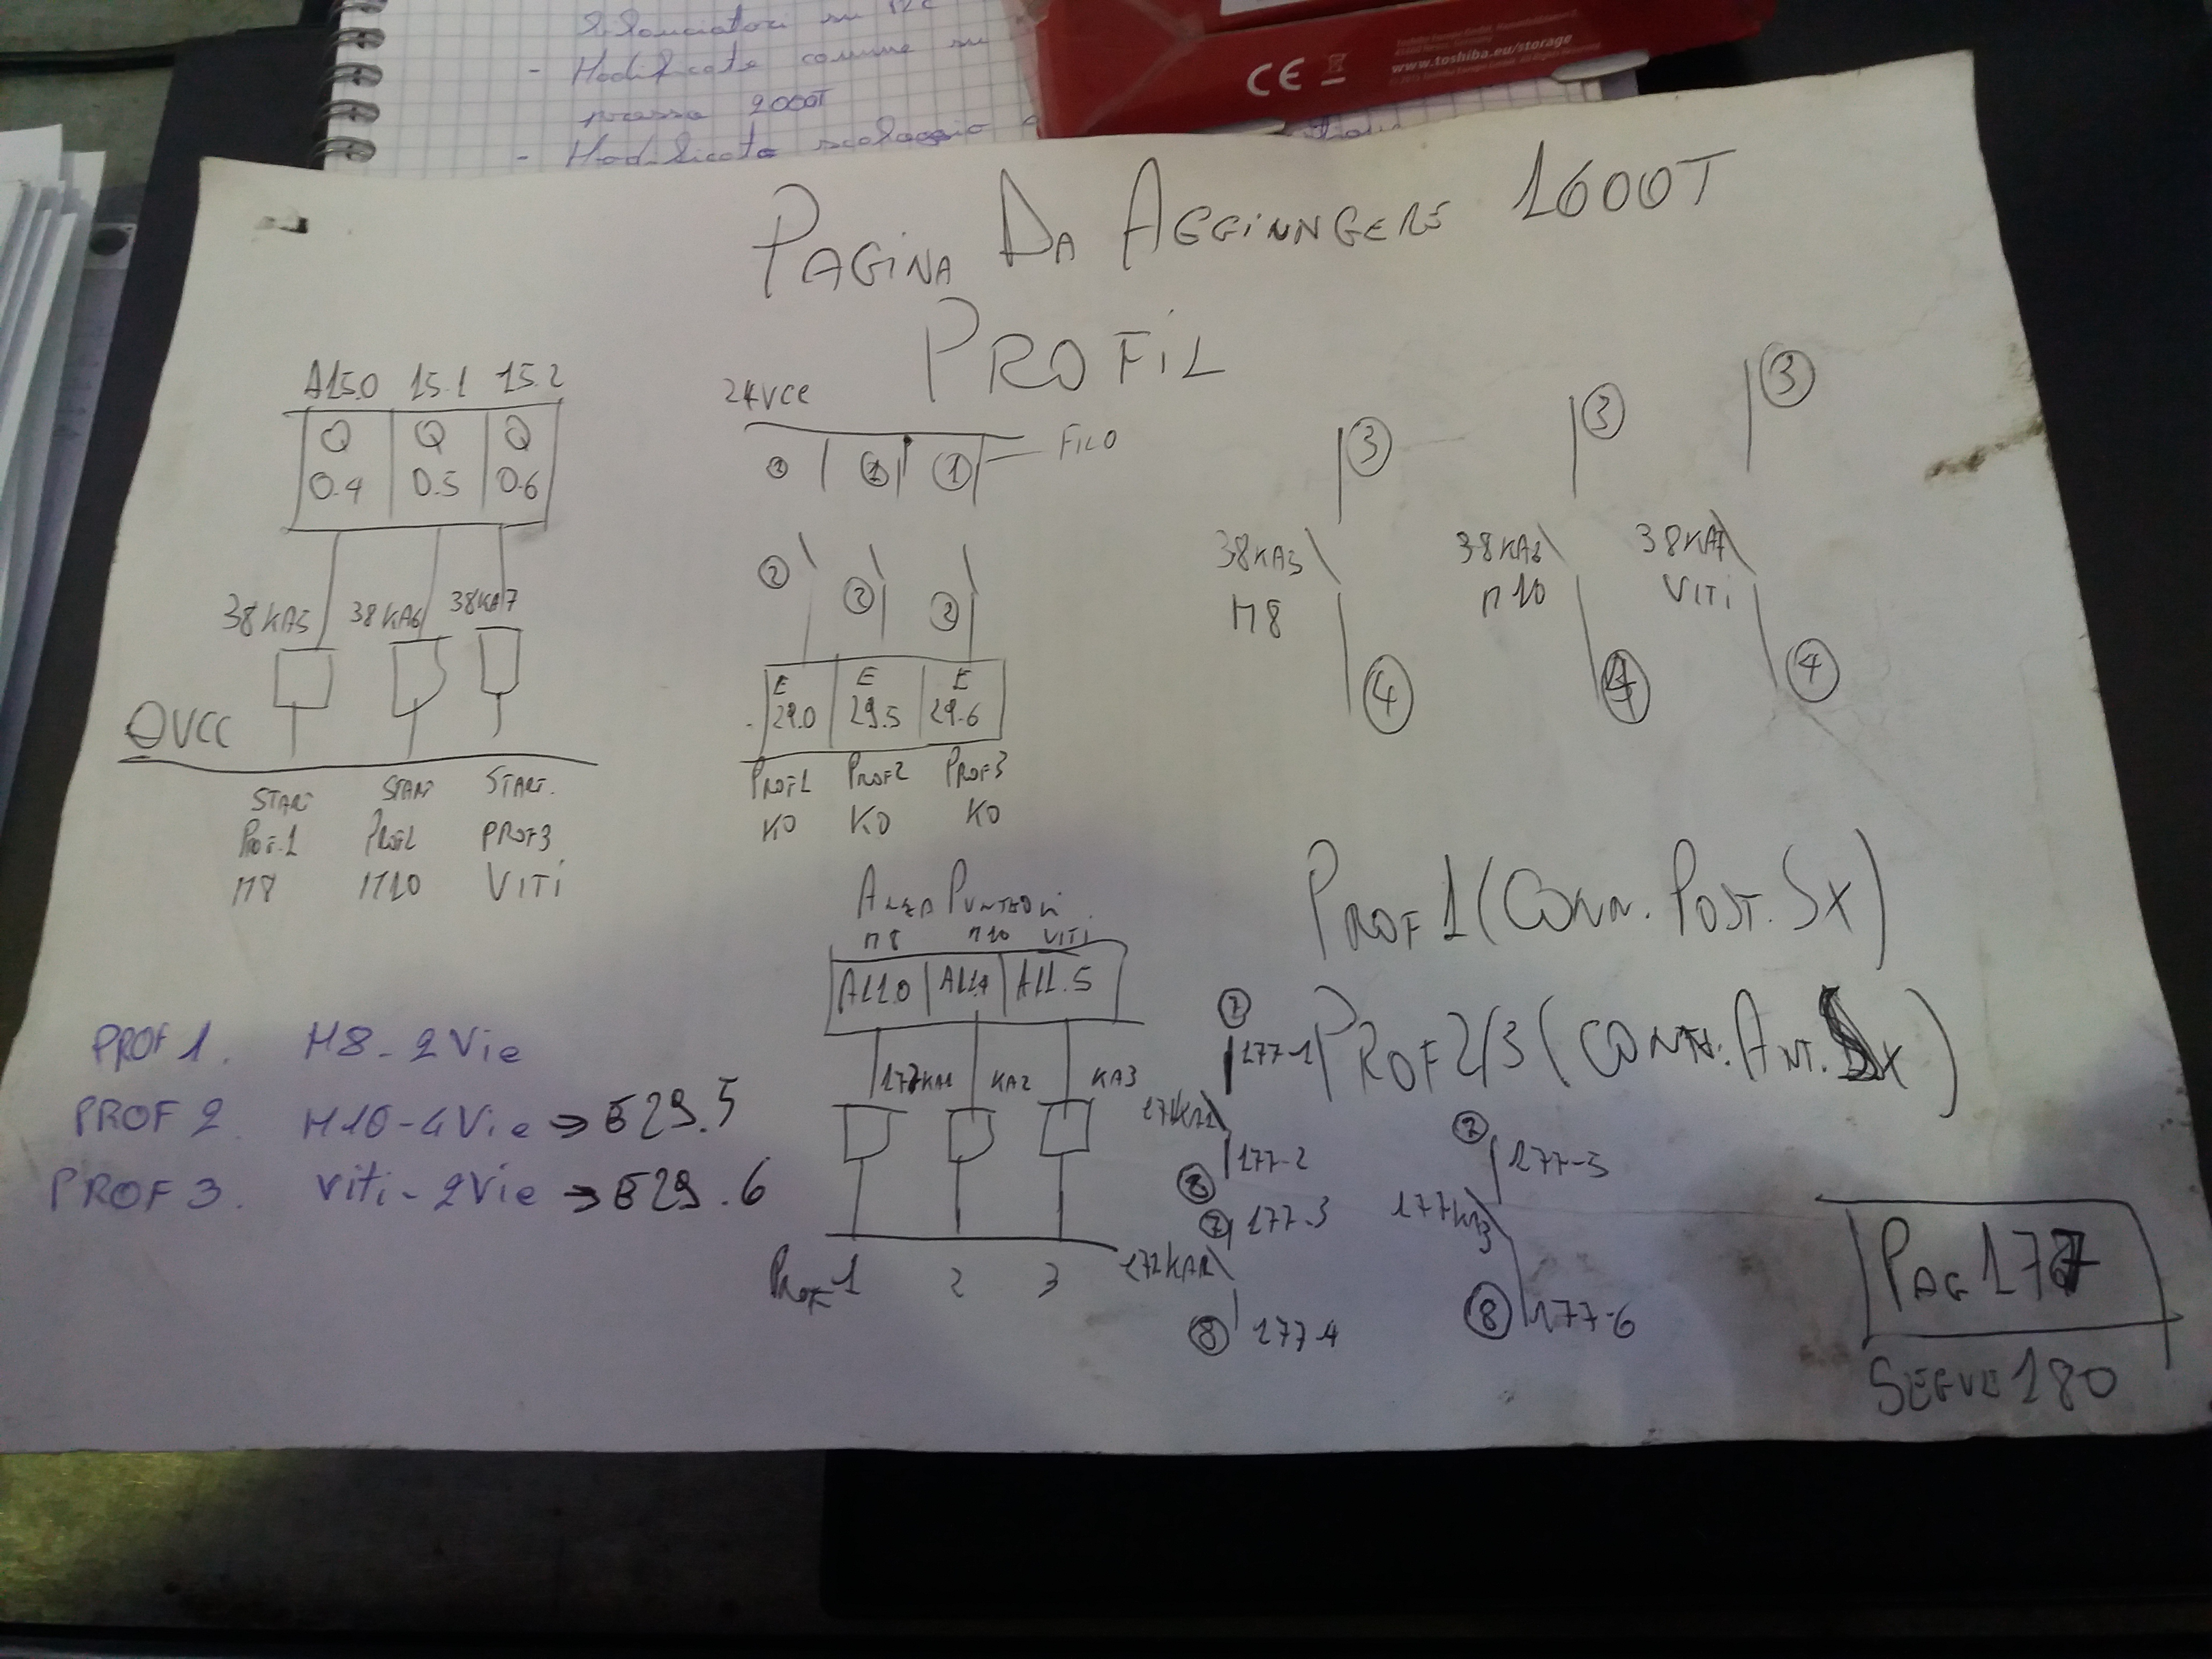 - Modificata comune su
pressa 2000T
- Modificata
CE
www.toshiba.eu/storage
PAGINA DA AGGINNGERE 1600T
PROFIL
A15.0 15.1 15.2
Q Q Q
0.4 0.5 0.6
38KA5 38KA6 38KA7
0VCC
START START START.
PROF.1 PROF2 PROF3
M8 M10 VITI
24VCC
FILO
1 1 1
2 2 2
E E E
29.0 29.5 29.6
PROF1 PROF2 PROF3
KO KO KO
3 3 3
38KA5 38KA6 38KA7
M8 M10 VITI
4 4 4
PROF1 (CONN. POST. SX)
PROF2/3 (CONN. ANT. X)
M8 M10 VITI
A11.0 A11.4 A11.5
177KA1 KA2 KA3
PROF 1 2 3
PROF 1. M8-2Vie
PROF 2. M10-4Vie → E29.5
PROF 3. Viti-2Vie → E29.6
7 177-1
177KA1
8 177-2
7 177-3
177KA2
8 177-4
7 177-5
177KA3
8 177-6
PAG 177
SEGUE 180